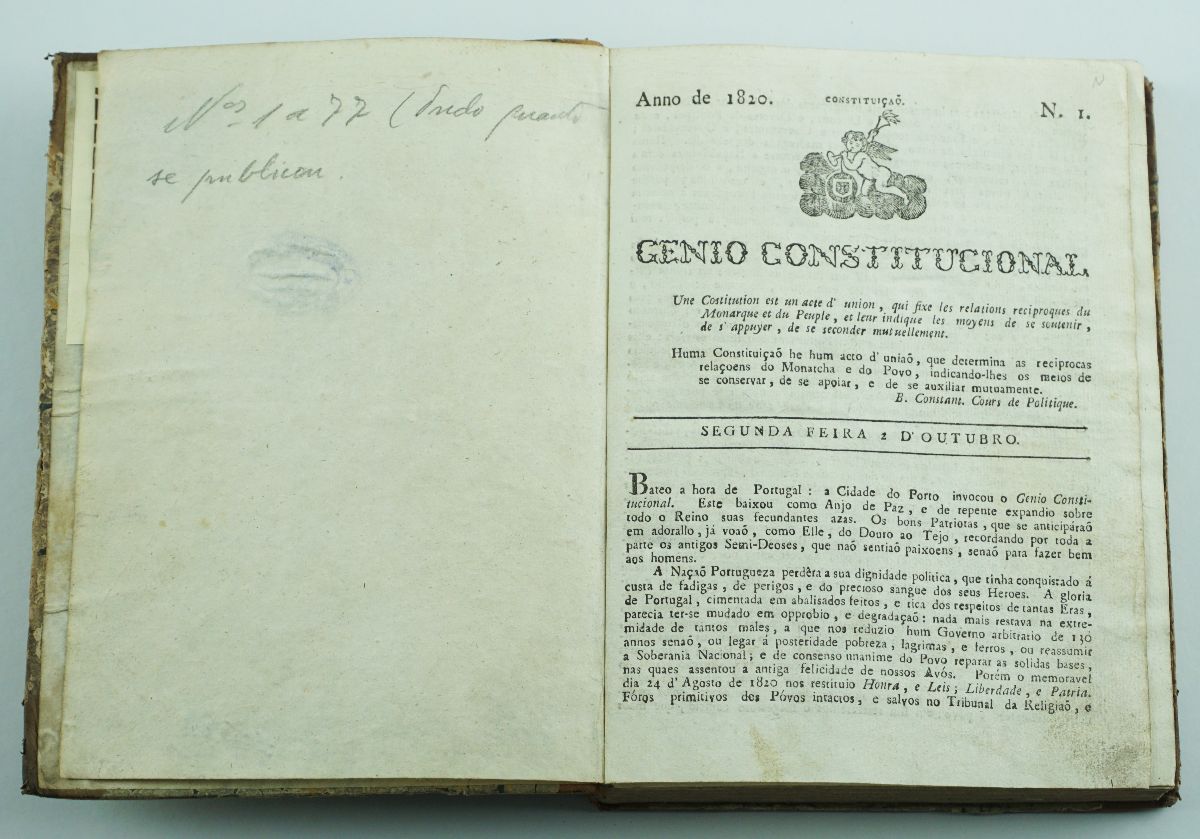 Nos 1 a 77 (Tudo quanto
se publicou.
Anno de 1820.
CONSTITUIÇAÕ.
N. 1.
GENIO CONSTITUCIONAL
Une Costitution est un acte d' union, qui fixe les relations reciproques du
Monarque et du Peuple, et leur indique les moyens de se soutenir,
de s' appuyer, de se seconder mutuellement.
Huma Constituiçaõ he hum acto d' uniaõ, que determina as reciprocas
relaçoens do Monatcha e do Povo, indicando-lhes os meios de
se conservar, de se apoiar, e de se auxiliar mutuamente.
B. Constant. Cours de Politique.
SEGUNDA FEIRA 2 D'OUTUBRO.
Bateo a hora de Portugal: a Cidade do Porto invocou o Genio Consti-
tucional. Este baixou como Anjo de Paz, e de repente expandio sobre
todo o Reino suas fecundantes azas. Os bons Patriotas, que se anticipáraõ
em adorallo, já voaõ, como Elle, do Douro ao Tejo, recordando por toda a
parte os antigos Semi-Deoses, que naõ sentiaõ paixoens, senaõ para fazer bem
aos homens.
A Naçaõ Portugueza perdêra a sua dignidade politica, que tinha conquistado á
custa de fadigas, de perigos, e do precioso sangue dos seus Heroes. A gloria
de Portugal, cimentada em abalisados feitos, e rica dos respeitos de tantas Eras,
parecia ter-se mudado em opprobio, e degradaçaõ: nada mais restava na extre-
midade de tantos males, a que nos reduzio hum Governo arbitrario de 130
annos senaõ, ou legar á posteridade pobreza, lagrimas, e ferros, ou reassumir
a Soberania Nacional; e de consenso unanime do Povo reparar as solidas bases,
nas quaes assentou a antiga felicidade de nossos Avós. Porém o memoravel
dia 24 d'Agosto de 1820 nos restituio Honra, e Leis; Liberdade, e Patria.
Fóros primitivos dos Póvos intactos, e salvos no Tribunal da Religiaõ, e